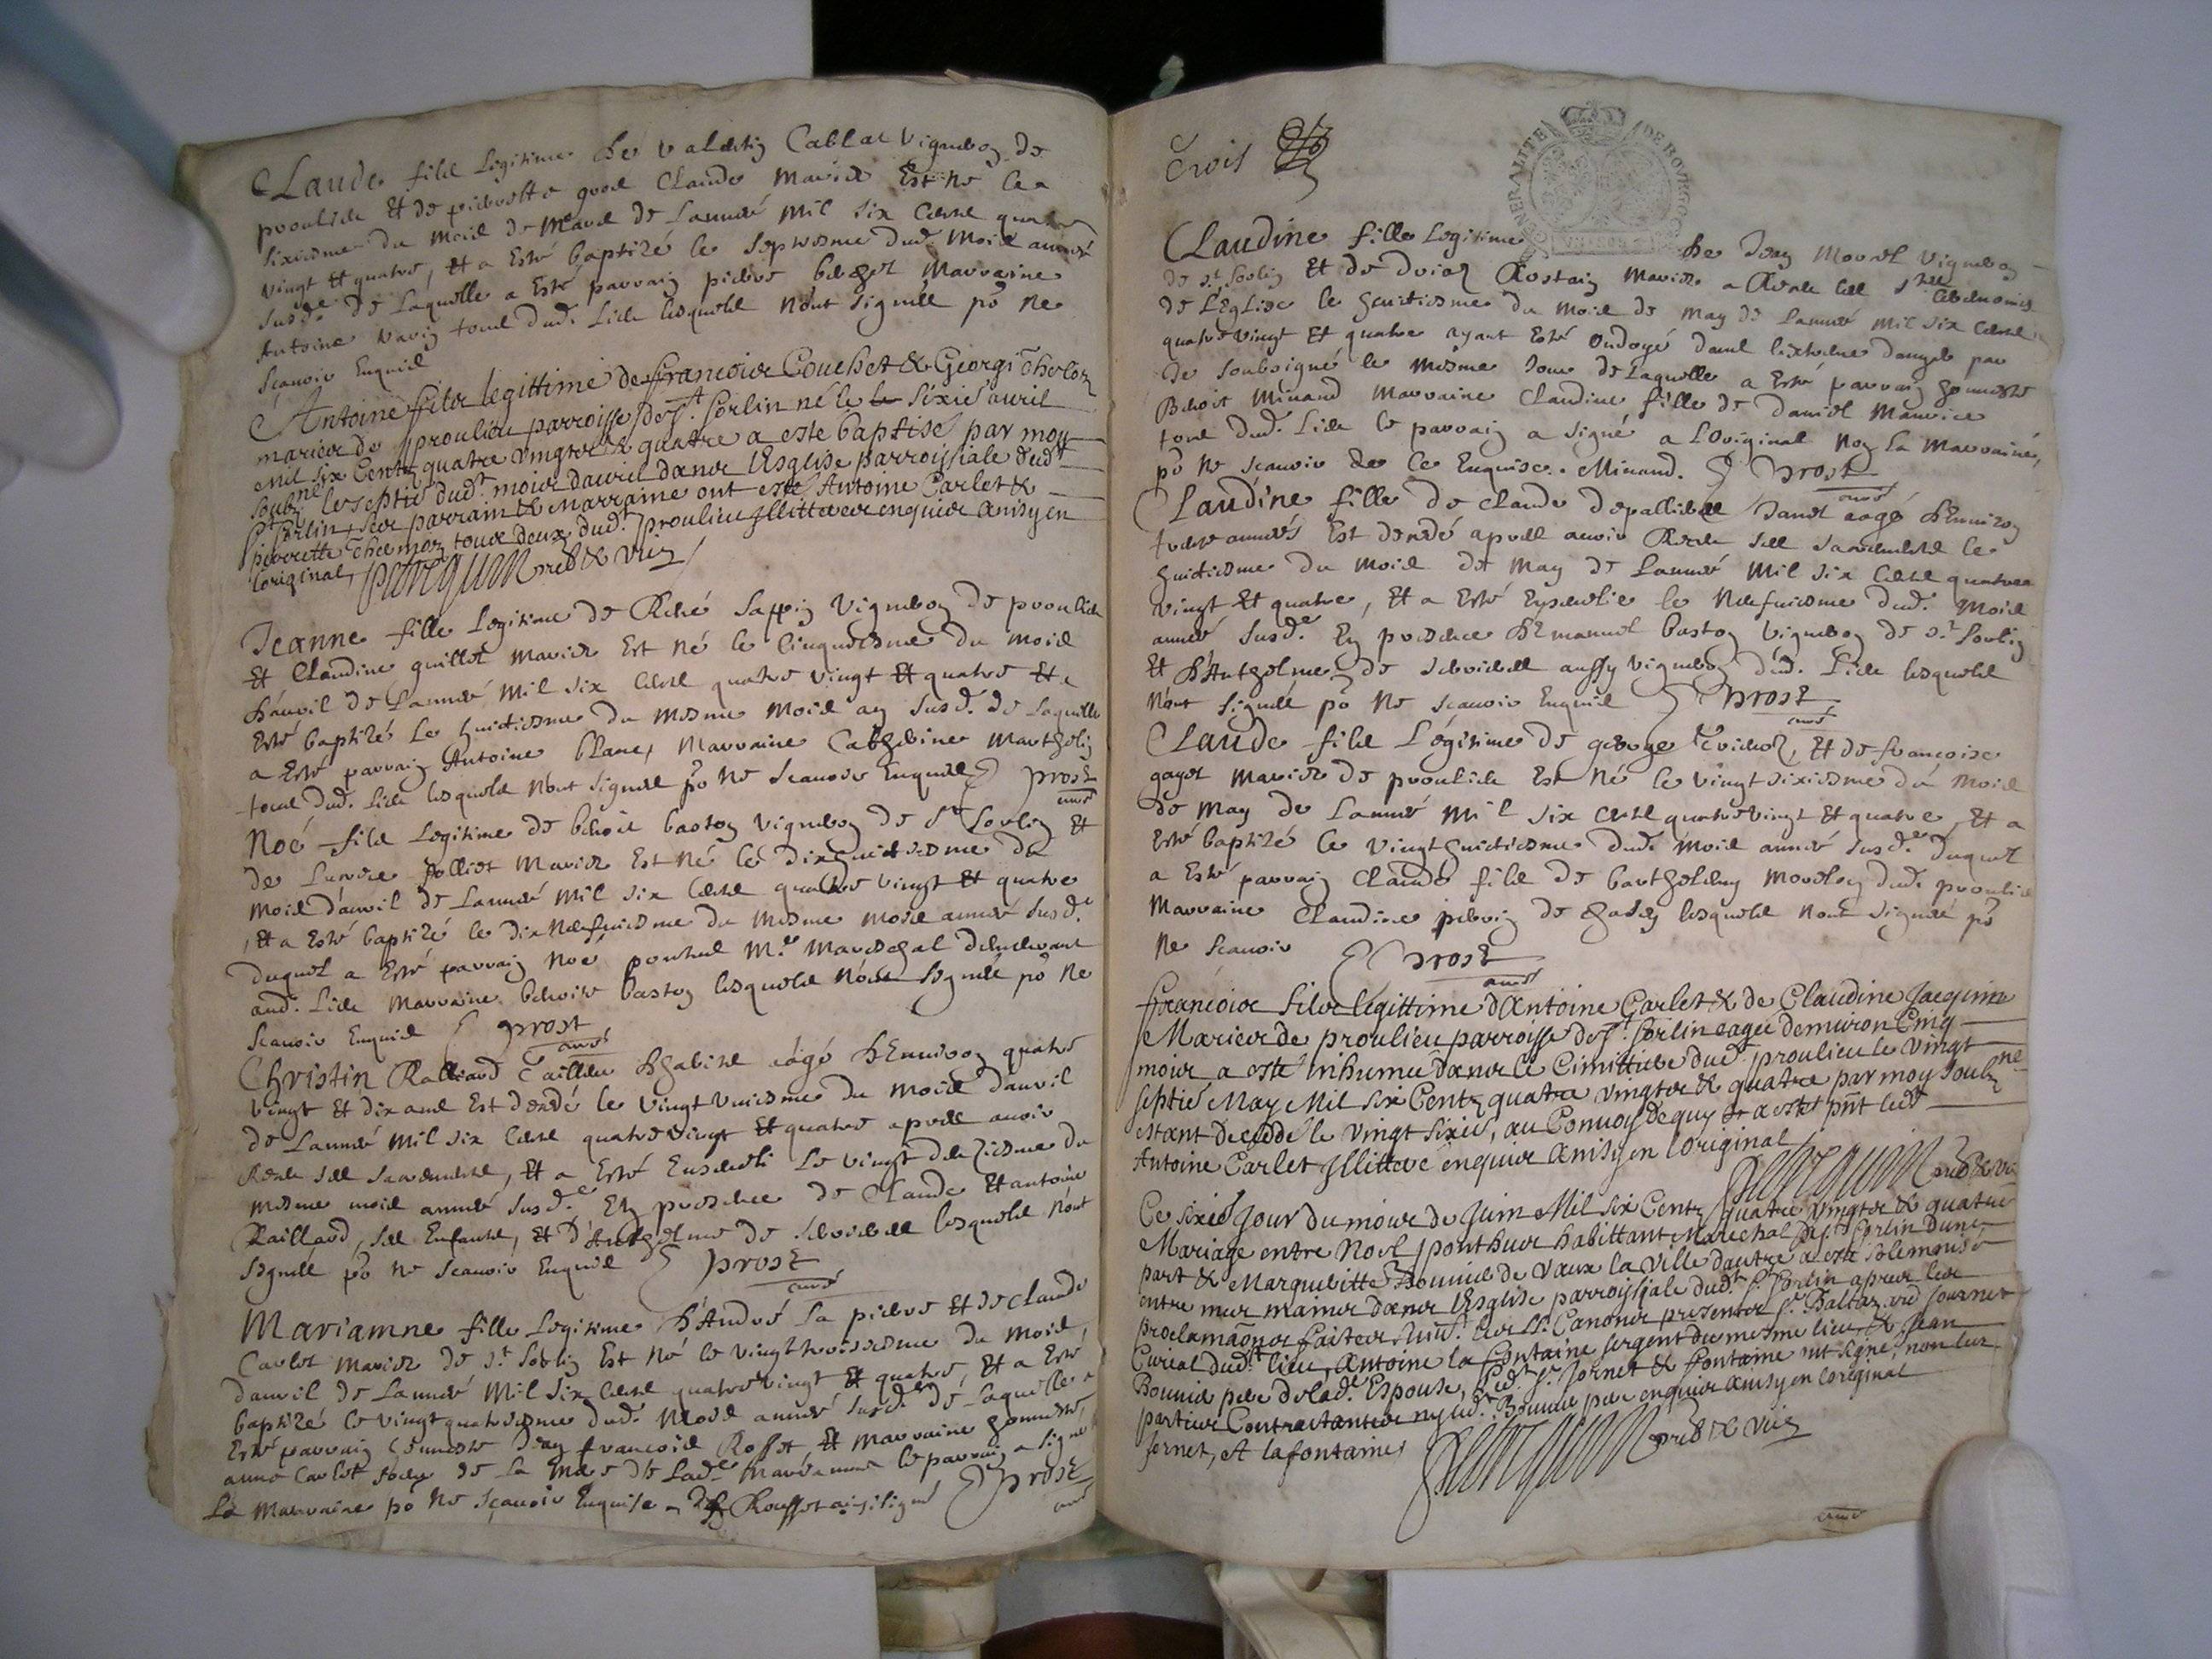 Claude filz legitime de Valentin Cablat vigneron de
proulieu et de pierrette Claude mariez Est né le
sixiesme du mois de Mars de l'année mil six cents quatre
vingt et quatre, et a Esté baptizé le septiesme dud. mois année
susd.e de laquelle a Esté parrain pierre Marraine
Antoine tous dud. lieu lesquels n'ont signés po ne
scavoir Enquis
Antoine filz legittime de françois Couchet & Georgi
mariez de proulieu parroisse de St Sorlin né le le sixié auril
mil six Centz quatre vingtz & quatre a esté baptisé par moy
soubz.né le septié dud.t mois dauril danz l'Esglise parroissiale dud.t
St Sorlin, ses parrain & Marraine ont esté Antoine Carlet &
pierrette tous deux dud.t proulieu Illitteres enquis ainsy en
loriginal
Jeanne fille Legitime de René Sappin Vigneron de proulieu
Et Claudine guillot mariez Est né le Cinquiesme du mois
d'auril de l'année mil six cents quatre vingt Et quatre Et a
Esté baptizé Le huictiesme du mesme mois an susd. de laquelle
a Esté parrain Antoine blanc, Marraine Catherine Marthelin
tous dud. lieu lesquels n'ont signés po ne scauoir Enquis prost
curé
Noé filz Legitime de benoit baston vigneron de St Sorlin Et
de Lucrece polliet mariez Est né le dixhuictiesme du
mois d'auril de l'année mil six cents quatre vingt Et quatre
, Et a Esté baptizé le dixneufuiesme du mesme mois année susd.e
duquel a Esté parrain noé ponthus M.e Mareschal demeurant
aud. lieu Marraine benoite baston lesquels n'ont signés po ne
scauoir Enquis prost
curé
Christin Ralliard Tailleur Habitant aagé d'Enuiron quatre
vingt Et dix ans Est decedé le vingt uniesme du mois dauril
de l'année mil six cents quatre vingt Et quatre apres auoir
Receu ses sacrements, Et a Esté Enseueli Le vingt deuxiesme du
mesme mois année susd.e En presence de Claude Et antoine
Raillard, ses Enfants, Et d'Anthelme de lesquels n'ont
signés po ne scauoir Enquis prost
curé
Mariamne fille Legitime d'André La pierre Et de claude
Carlet mariez de St Sorlin Est né le vingt troisiesme du mois
dauril de l'année mil six cents quatre vingt Et quatre, Et a Esté
baptizé le vingt quatriesme dud. mois année susd. de laquelle a
Esté parrain honneste Jean françois Rosset Et marraine honneste
anne Carlet de la de lad.e Mariamne le parrain a signé
La marraine po ne sçauoir Enquise Rousset ainsi signé prost
curé
Trois
GENERALITE DE BOVRGO
Claudine fille Legitime de Jean Morel vigneron
de St Sorlin Et de Rostain mariez a Receu les Stes Ceremonies
de L'Eglise le huictiesme du mois de May de l'année mil six cents
quatre vingt Et quatre ayant Esté ondoyé dans lextreme danger par
de soubsigné le mesme Jour de laquelle a Esté parrain honneste
Benoit Minand Marraine Claudine fille de Daniel Maurice
tous dud. lieu le parrain a signé a L'original non la Marraine,
po ne scauoir de ce Enquise. Minand. prost
curé
Claudine fille de claude depallieres aagé d'Enuiron
trois années Est decedé apres auoir Receu ses sacrements le
huictiesme du mois de May de l'année mil six cents quatre
vingt Et quatre, Et a Esté Enseuelie le neufuiesme dud. mois
année susd.e En presence d'Emanuel baston vigneron de St Sorlin
Et d'Anthelme de aussy vigneron dud. lieu lesquels
n'ont signés po ne scauoir Enquis prost
curé
Claude filz Légitime de george Et de françoise
gayet mariez de proulieu Est né le vingt sixiesme du mois
de May de l'année mil six cents quatre vingt Et quatre, Et a
Esté baptizé le vingt huictiesme dud. mois année susd.e duquel
a Esté parrain Claude filz de barthelemy dud. proulieu
Marraine Claudine de lesquels n'ont signés po
ne scauoir prost
curé
françois filz légittime d'Antoine Carlet & de Claudine Jacquine
Mariez de proulieu parroisse de St Sorlin eagée denuiron Cinq
mois a esté inhumé danz le Cimittiere dud. proulieu le vingt
septié May Mil six Centz quatre vingtz & quatre par moy soubz.né
estant decedé le vingt sixié, au Conuoy de quy a esté pnt led
Antoine Carlet Illittere enquis ainsy en loriginal
Ce sixié Jour du mois de Juin Mil six Centz quatre vingtz & quatre
Mariage entre Noel ponthus habittant Marechal de St Sorlin dune
part & Margueritte Bonnié de Vaux la ville dautre a esté solemnisé
entre mes mains danz lEsglise parroissiale dud.t St Sorlin apres les
proclamaõns faites suiu.t les SS. Canons presentz Sr Baltazard Journet
Curial dud.t lieu, Antoine la fontaine sergent du mesme lieu, & Jean
Bonnié pere de lad.e Espouse, led.t Sr Jornet & fontaine ont signé, non les
parties Contractantes ny led.t Bonnié pere enquis ainsy en loriginal
Jornet, et lafontaine